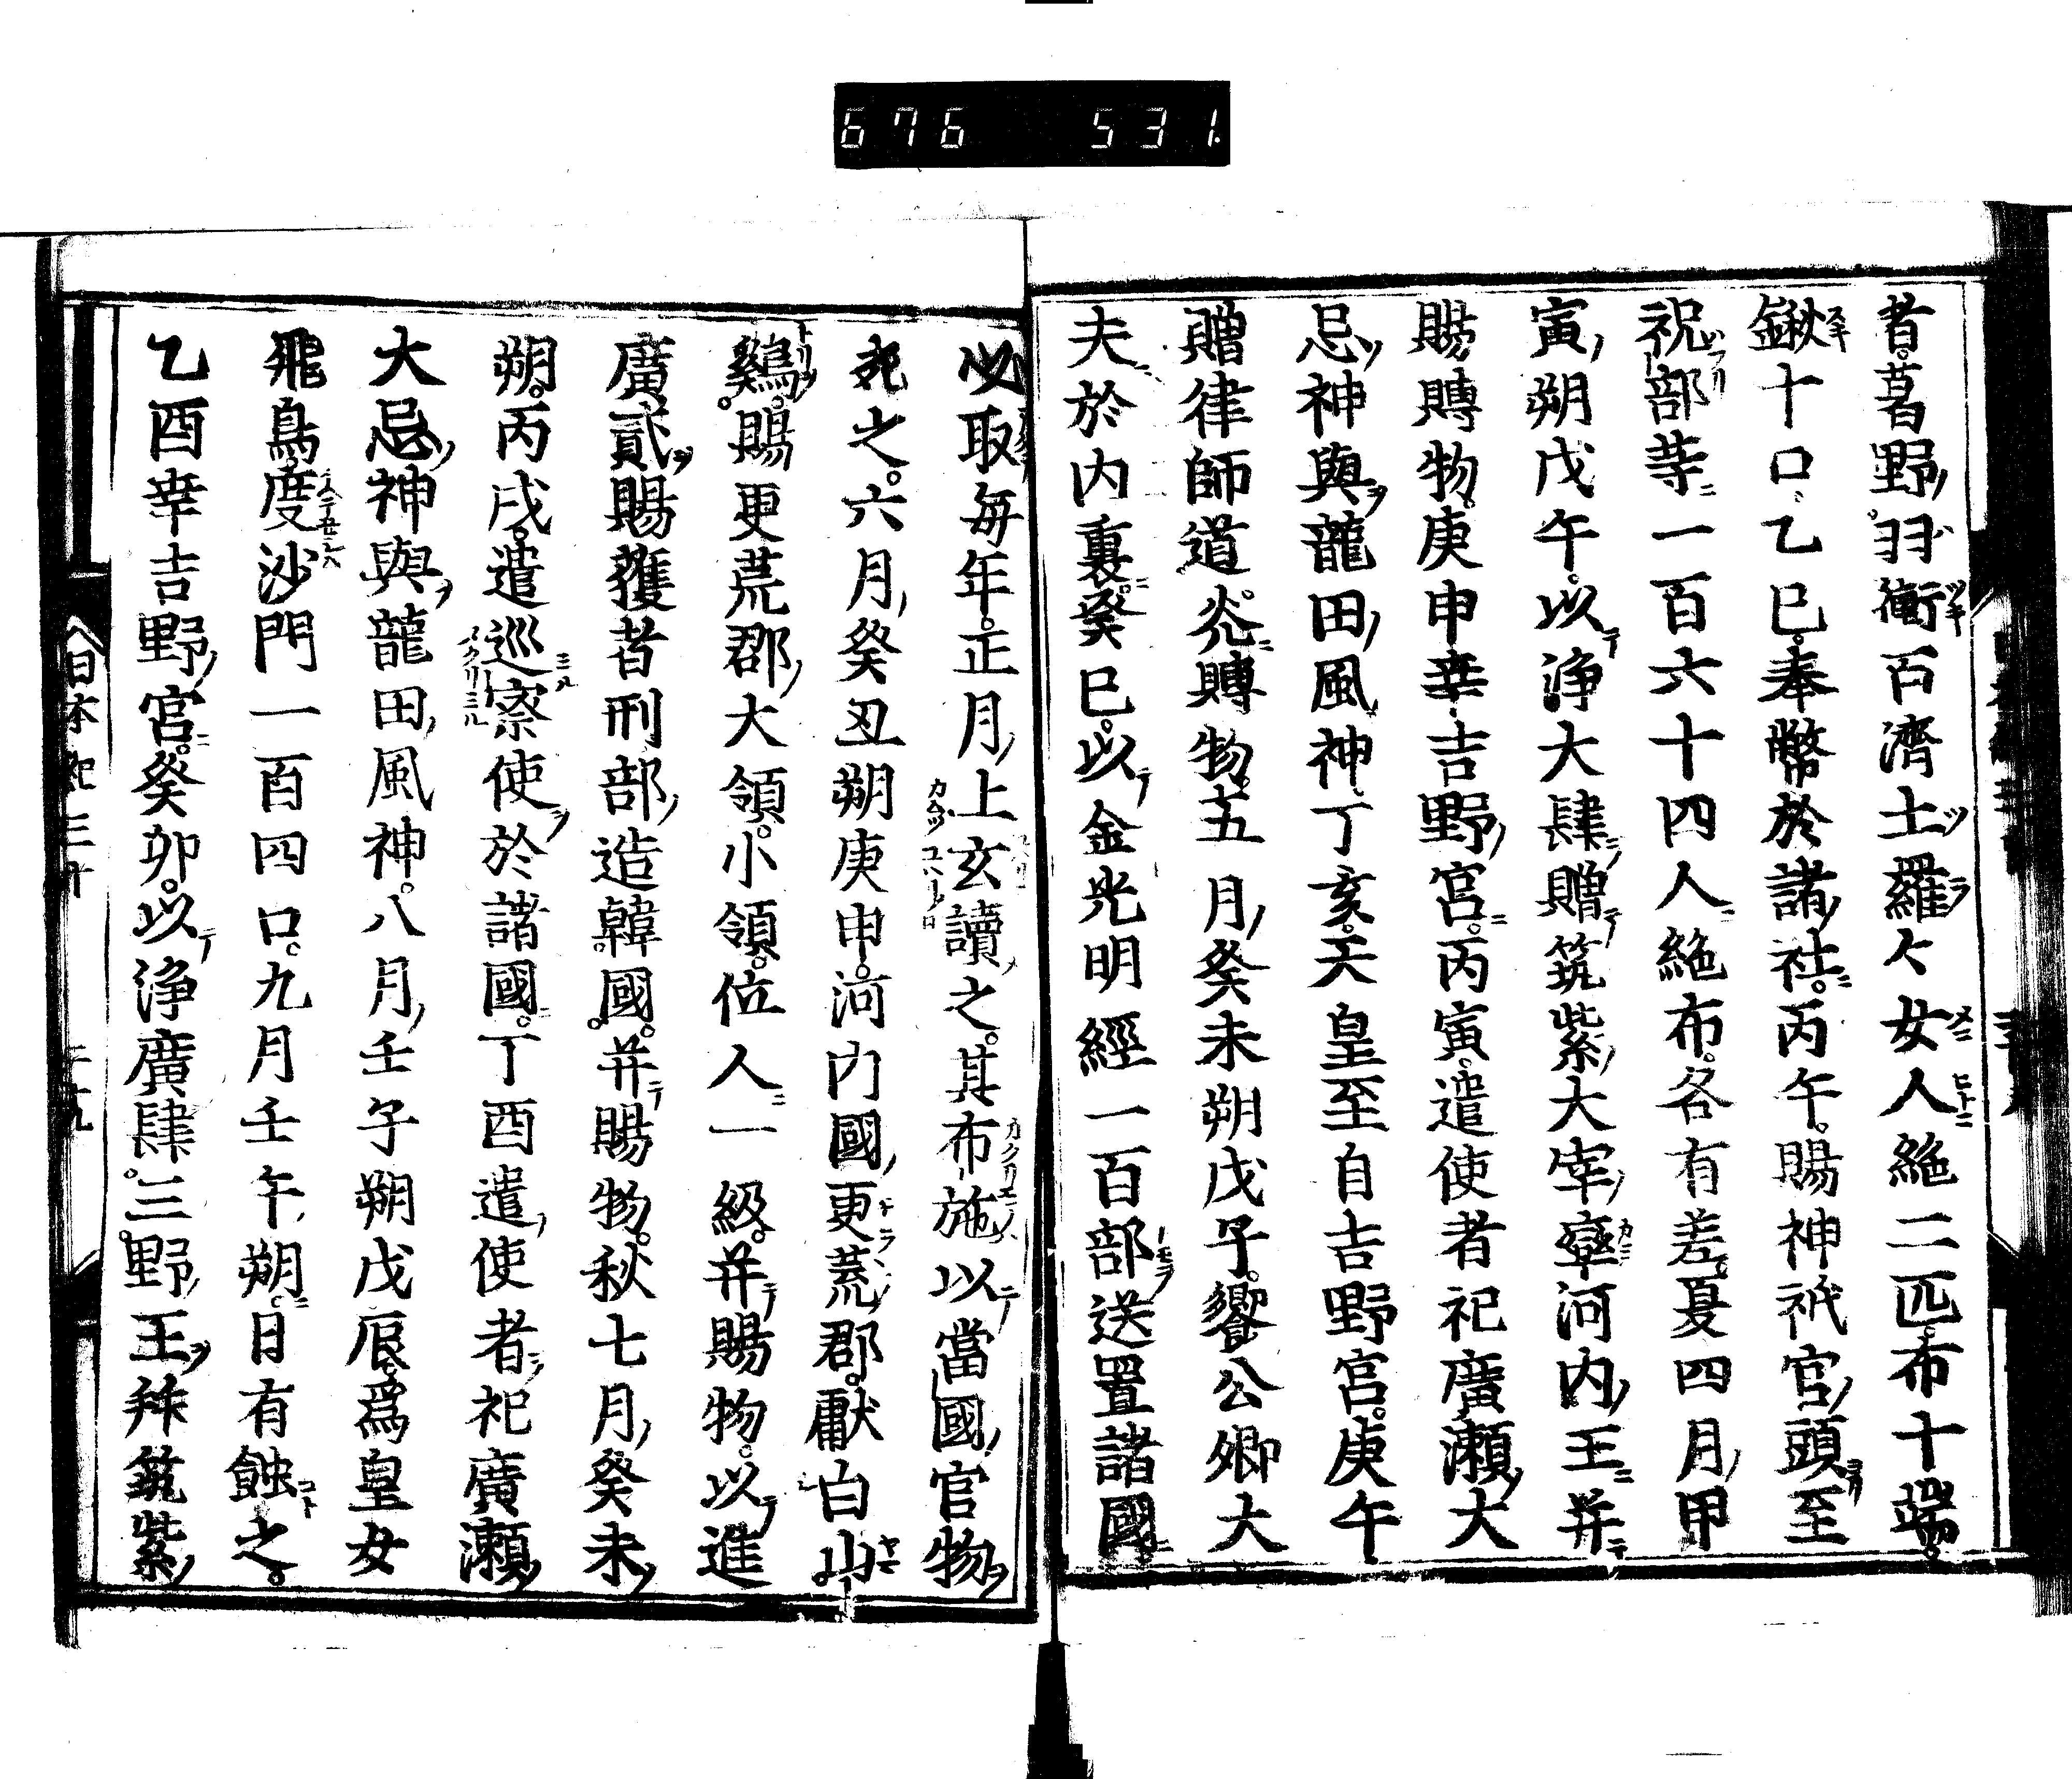 676 531.
者葛野羽衝百濟土羅々女人絁二匹布十端
鍬十口乙巳奉幣於諸社丙午賜神祇官頭至
祝部等一百六十四人絁布各有差夏四月甲
寅朔戊午以淨大肆贈筑紫大宰率河内王幷
賜賻物庚申幸吉野宮丙寅遣使者祀廣瀬大
忌神與龍田風神丁亥天皇至自吉野宮庚午
贈律師道光賻物五月癸未朔戊子饗公卿大
夫於内裏癸巳以金光明經一百部送置諸國
必取毎年正月上玄讀之其布施以當國官物
宛之六月癸丑朔庚申河内國更荒郡獻白山
鷄賜更荒郡大領小領位人一級幷賜物以進
廣貳賜獲者刑部造韓國幷賜物秋七月癸未
朔丙戌遣巡察使於諸國丁酉遣使者祀廣瀬
大忌神與龍田風神八月壬子朔戊辰爲皇女
飛鳥度沙門一百四口九月壬午朔日有蝕之
乙酉幸吉野宮癸卯以淨廣肆三野王拜筑紫
日本紀三十